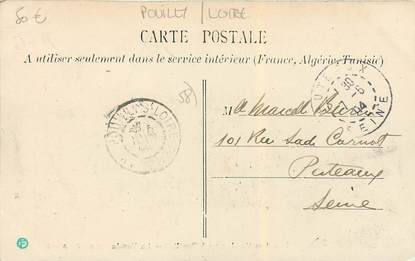 50 €
POUILLY / LOIRE
CARTE POSTALE
A utiliser seulement dans le service intérieur (France, Algérie, Tunisie)
58
M Marcel
101 Rue Sadi Carnot
Puteaux
Seine